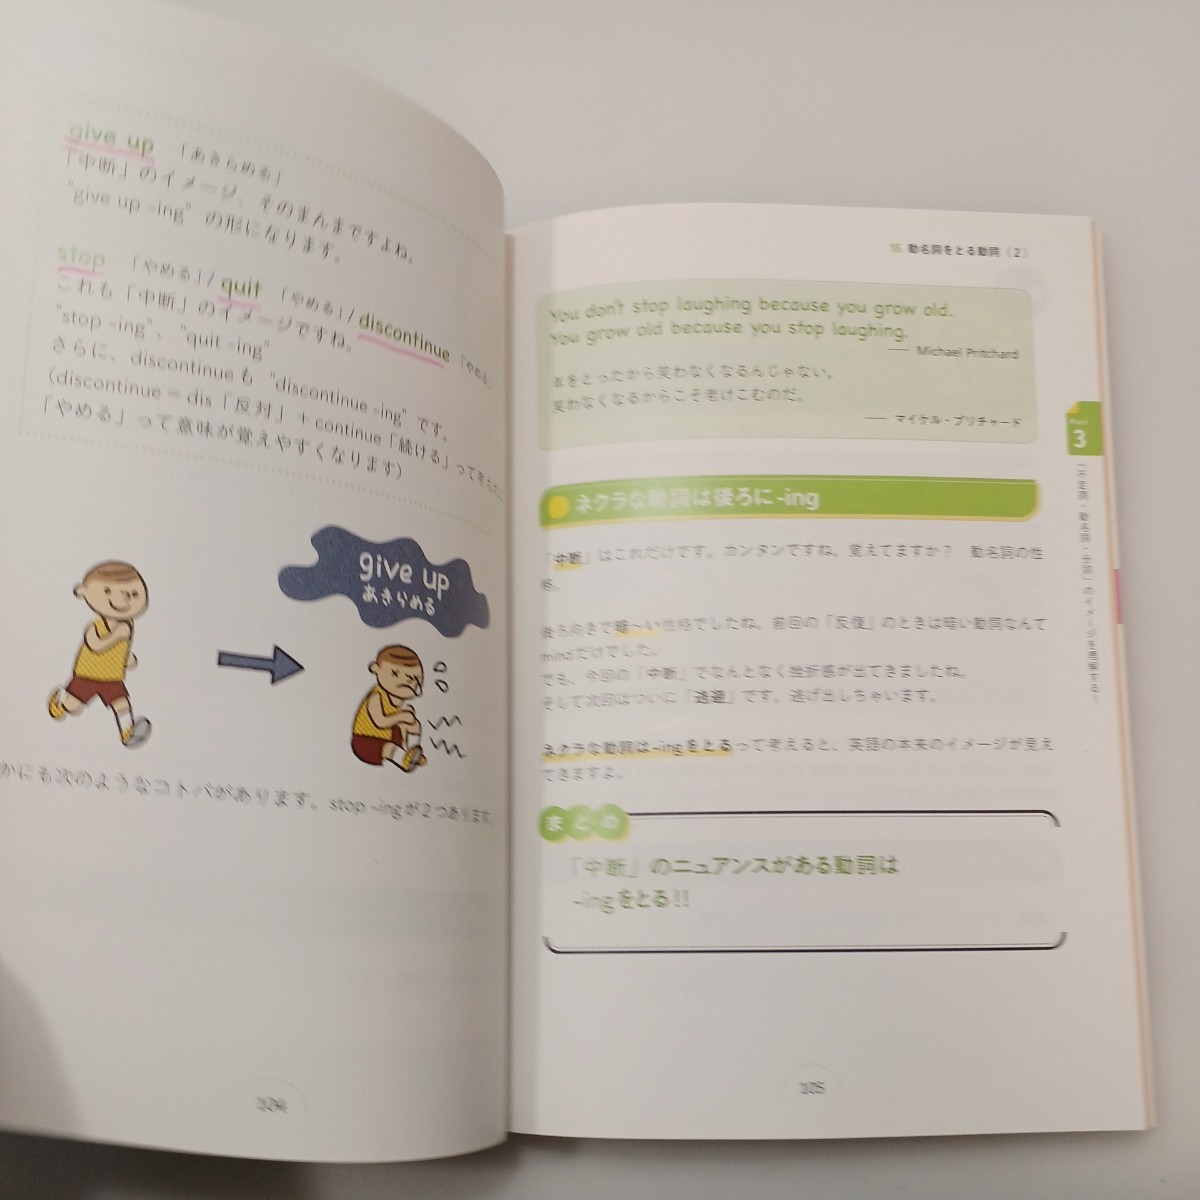 give up 「あきらめる」
「中断」のイメージ、そのまんまですよね。
"give up -ing" の形になります。
stop 「やめる」/ quit 「やめる」/ discontinue 「やめる」
これも「中断」のイメージですね。
"stop -ing"、"quit -ing"
さらに、discontinueも "discontinue -ing" です。
(discontinue = dis「反対」+ continue「続ける」って考え
「やめる」って意味が覚えやすくなります)
give up
あきらめる
かにも次のようなコトバがあります。stop -ingが2つあります。
104
16. 動名詞をとる動詞（2）
You don't stop laughing because you grow old.
You grow old because you stop laughing.
── Michael Pritchard
年をとったから笑わなくなるんじゃない。
笑わなくなるからこそ老けこむのだ。
── マイケル・プリチャード
ネクラな動詞は後ろに -ing
「中断」はこれだけです。カンタンですね。覚えてますか？ 動名詞の性
格。
後ろ向きで暗〜い性格でしたね。前回の「反復」のときは暗い動詞なんて
mindだけでした。
でも、今回の「中断」でなんとなく挫折感が出てきましたね。
そして次回はついに「逃避」です。逃げ出しちゃいます。
ネクラな動詞は -ingをとるって考えると、英語の本来のイメージが見え
てきますよ。
まとめ
「中断」のニュアンスがある動詞は
-ingをとる!!
105
Part
3
「不定詞・動名詞・分詞」のイメージを理解する！